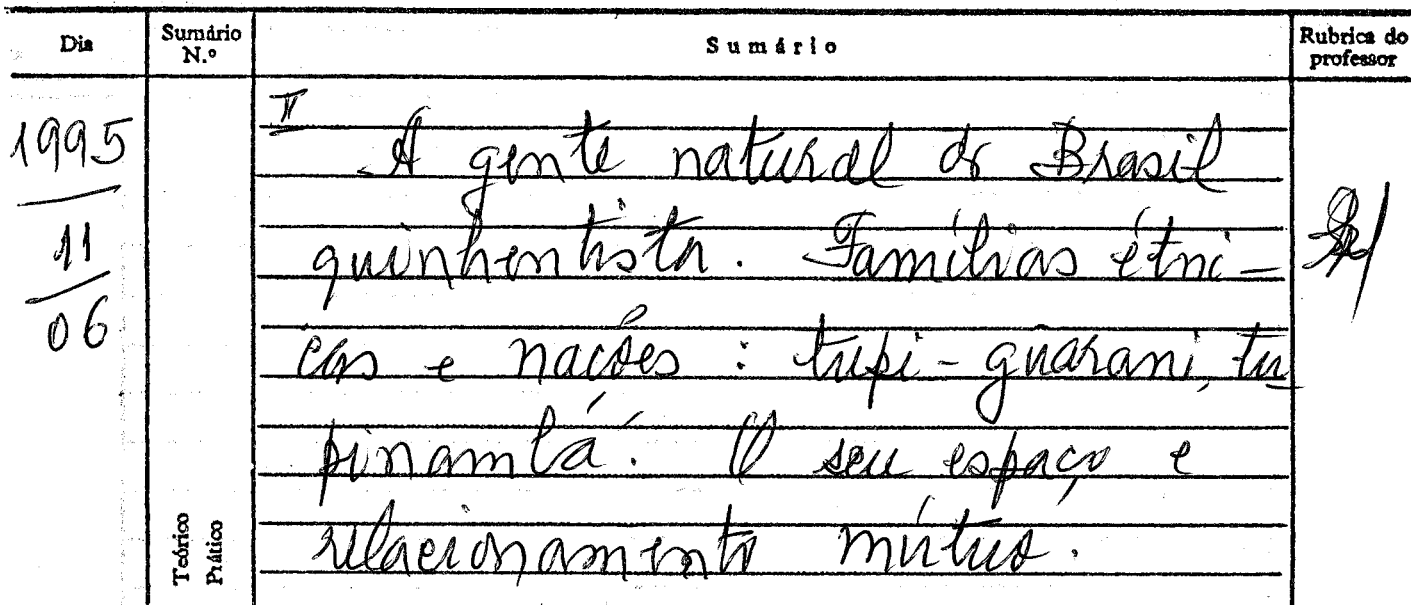 Dia Sumário N.º Sumário Rubrica do professor
1995
11
06
II
A gente natural do Brasil
quinhentista. Famílias étni-
cas e nações: tupi-guarani, tu
pinambá. O seu espaço e
relacionamento mútuo.
Teórico
Prático